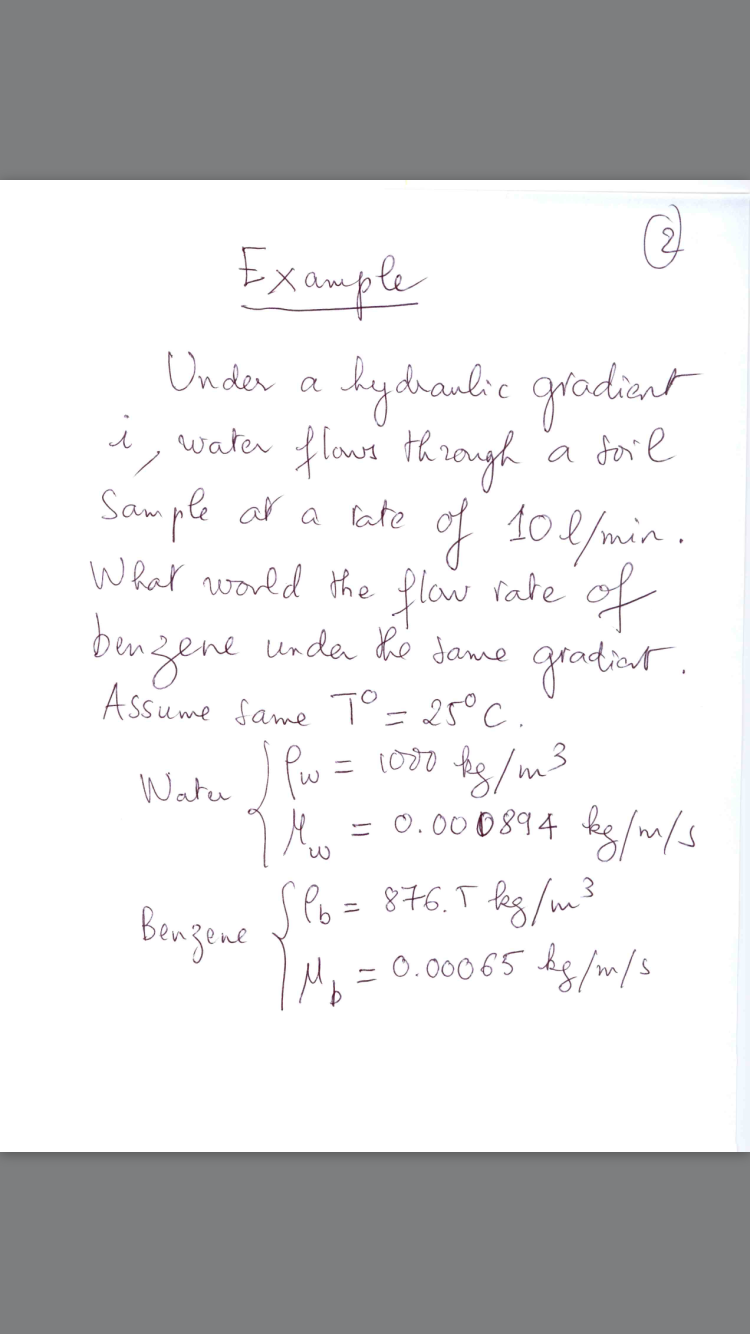 2
Example
Under a hydraulic gradient
i, water flows through a soil
Sample at a rate of 10 l/min.
What would the flow rate of
benzene under the same gradient.
Assume same T° = 25°C.
Water { ρw = 1000 kg/m³
μw = 0.000894 kg/m/s
Benzene { ρb = 876.5 kg/m³
μb = 0.00065 kg/m/s